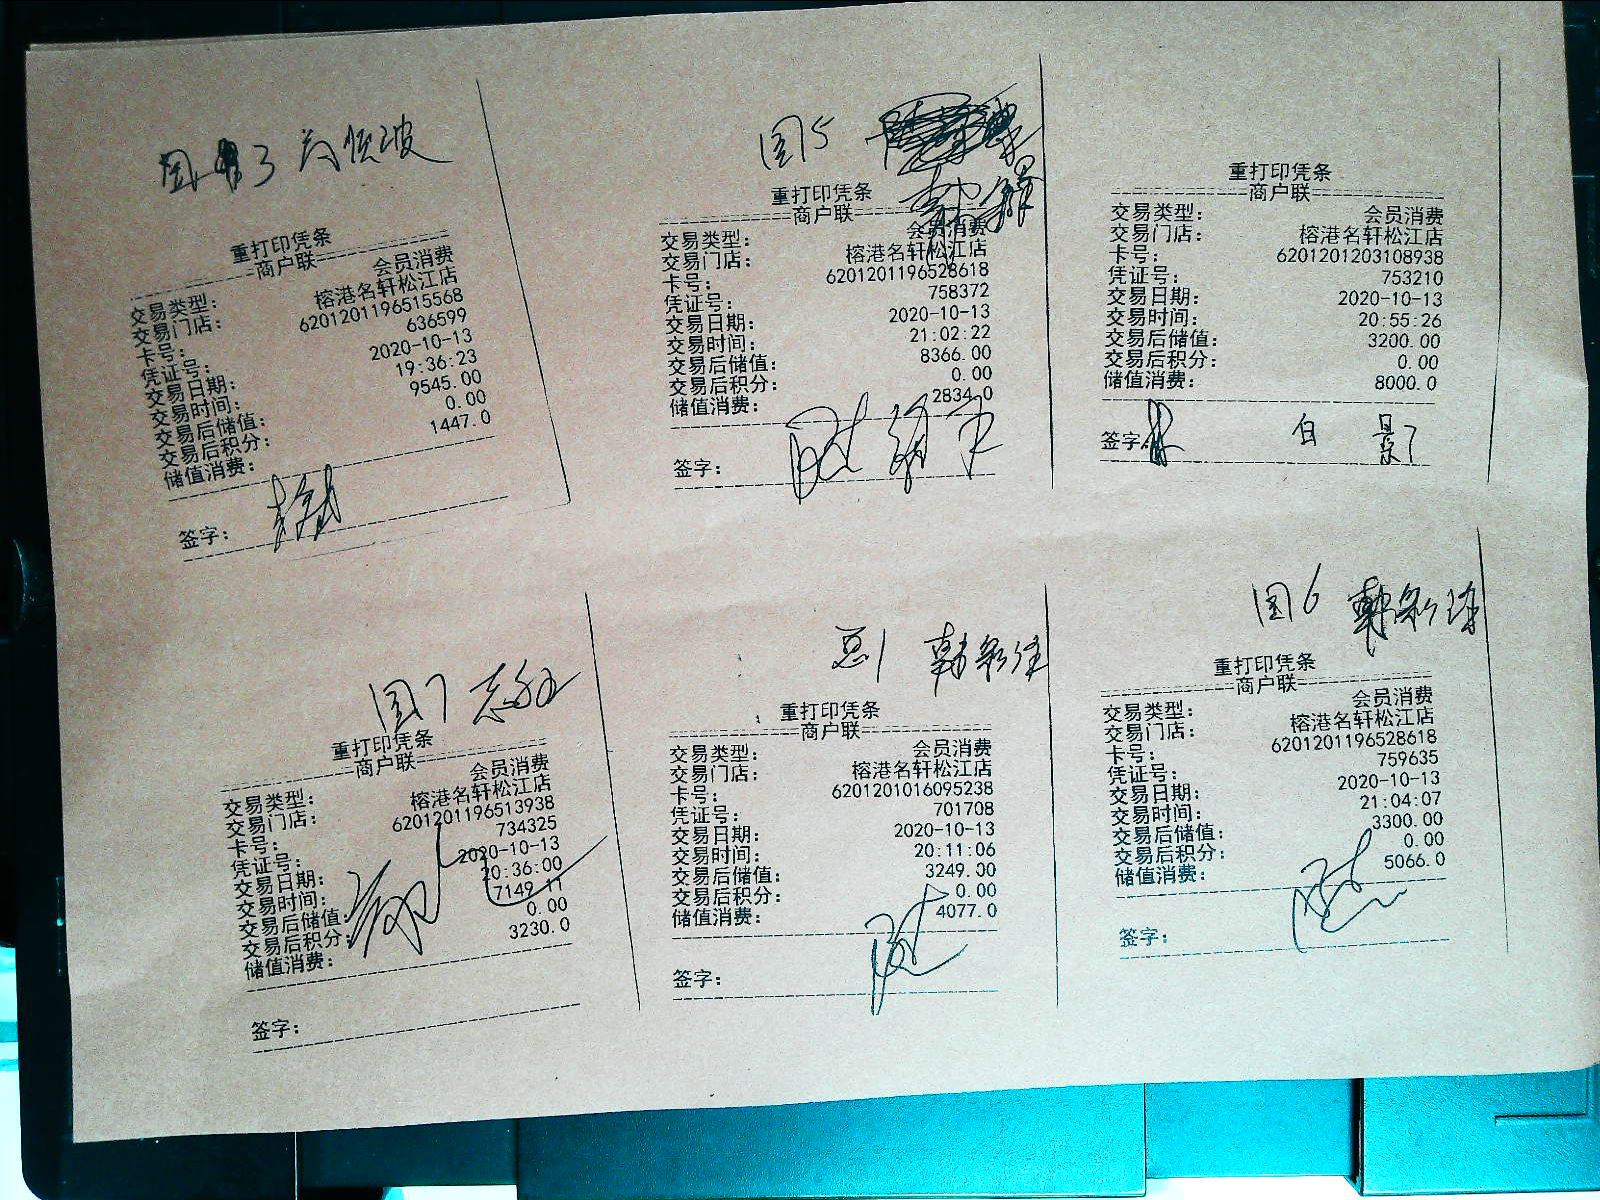 重打印凭条
商户联
交易类型： 会员消费
交易门店： 榕港名轩松江店
卡号： 6201201196515568
凭证号： 636599
交易日期： 2020-10-13
交易时间： 19:36:23
交易后储值： 9545.00
交易后积分： 0.00
储值消费： 1447.0
签字：
国5
重打印凭条
商户联
交易类型： 会员消费
交易门店： 榕港名轩松江店
卡号： 6201201196528618
凭证号： 758372
交易日期： 2020-10-13
交易时间： 21:02:22
交易后储值： 8366.00
交易后积分： 0.00
储值消费： 2834.0
签字：
重打印凭条
商户联
交易类型： 会员消费
交易门店： 榕港名轩松江店
卡号： 6201201203108938
凭证号： 753210
交易日期： 2020-10-13
交易时间： 20:55:26
交易后储值： 3200.00
交易后积分： 0.00
储值消费： 8000.0
签字：
国7
重打印凭条
商户联
交易类型： 会员消费
交易门店： 榕港名轩松江店
卡号： 6201201196513938
凭证号： 734325
交易日期： 2020-10-13
交易时间： 20:36:00
交易后储值： 7149.11
交易后积分： 0.00
储值消费： 3230.0
签字：
重打印凭条
商户联
交易类型： 会员消费
交易门店： 榕港名轩松江店
卡号： 6201201016095238
凭证号： 701708
交易日期： 2020-10-13
交易时间： 20:11:06
交易后储值： 3249.00
交易后积分： 0.00
储值消费： 4077.0
签字：
国6
重打印凭条
商户联
交易类型： 会员消费
交易门店： 榕港名轩松江店
卡号： 6201201196528618
凭证号： 759635
交易日期： 2020-10-13
交易时间： 21:04:07
交易后储值： 3300.00
交易后积分： 0.00
储值消费： 5066.0
签字：